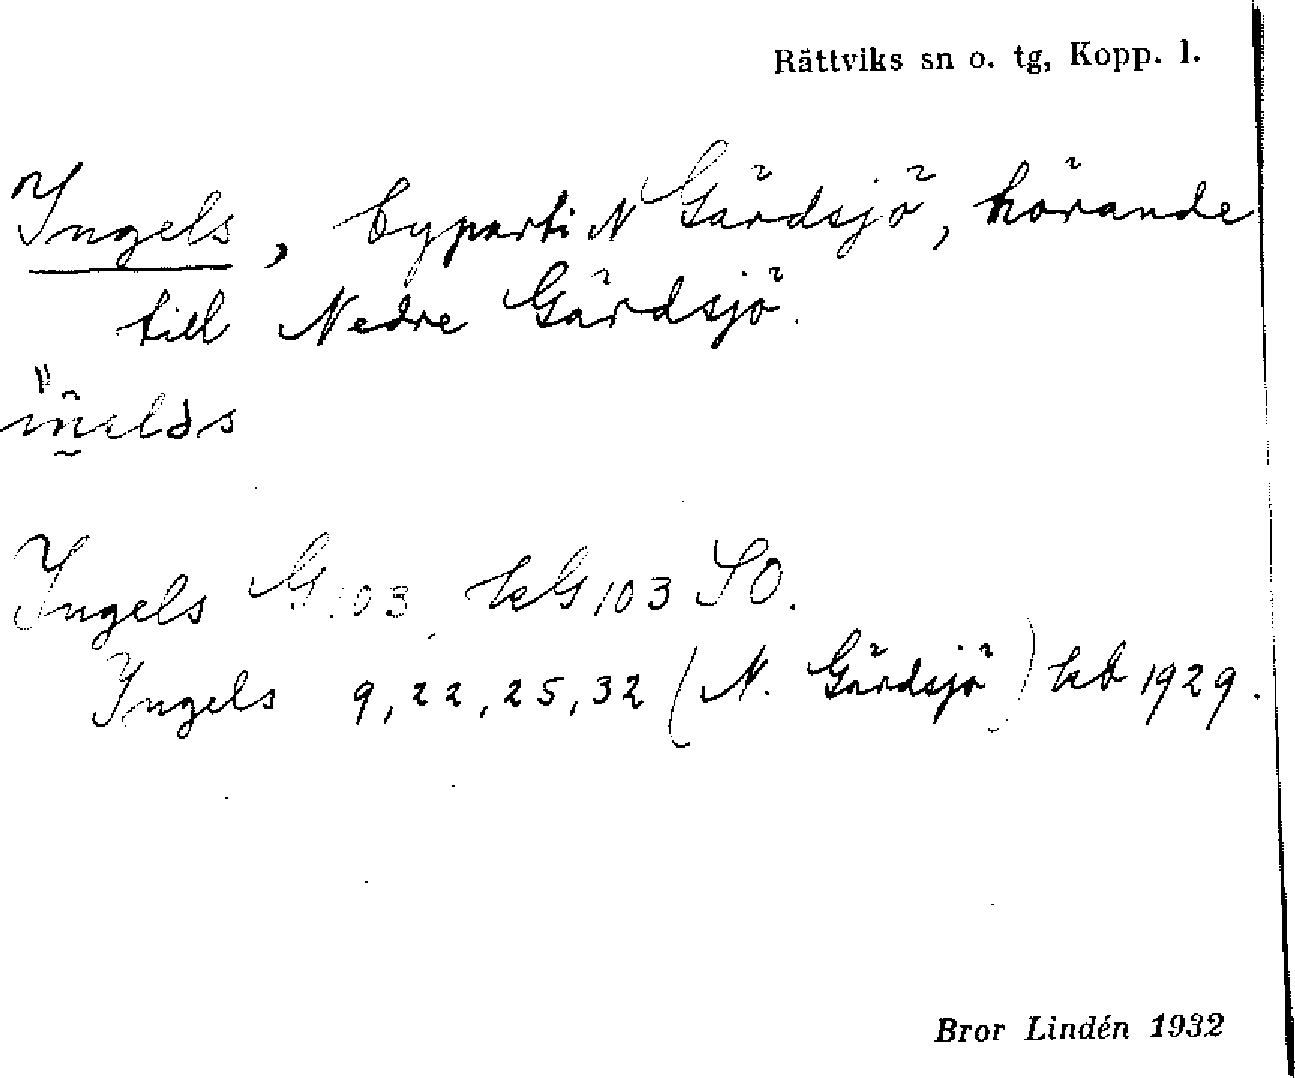 Rättviks sn o. tg, Kopp. l.
Ingels, byparti N Gärdsjö, hörande
till Nedre Gärdsjö.
Ingels G 103, kG 103 SO.
Ingels 9, 22, 25, 32 (N. Gärdsjö) kb 1929.
Bror Lindén 1932